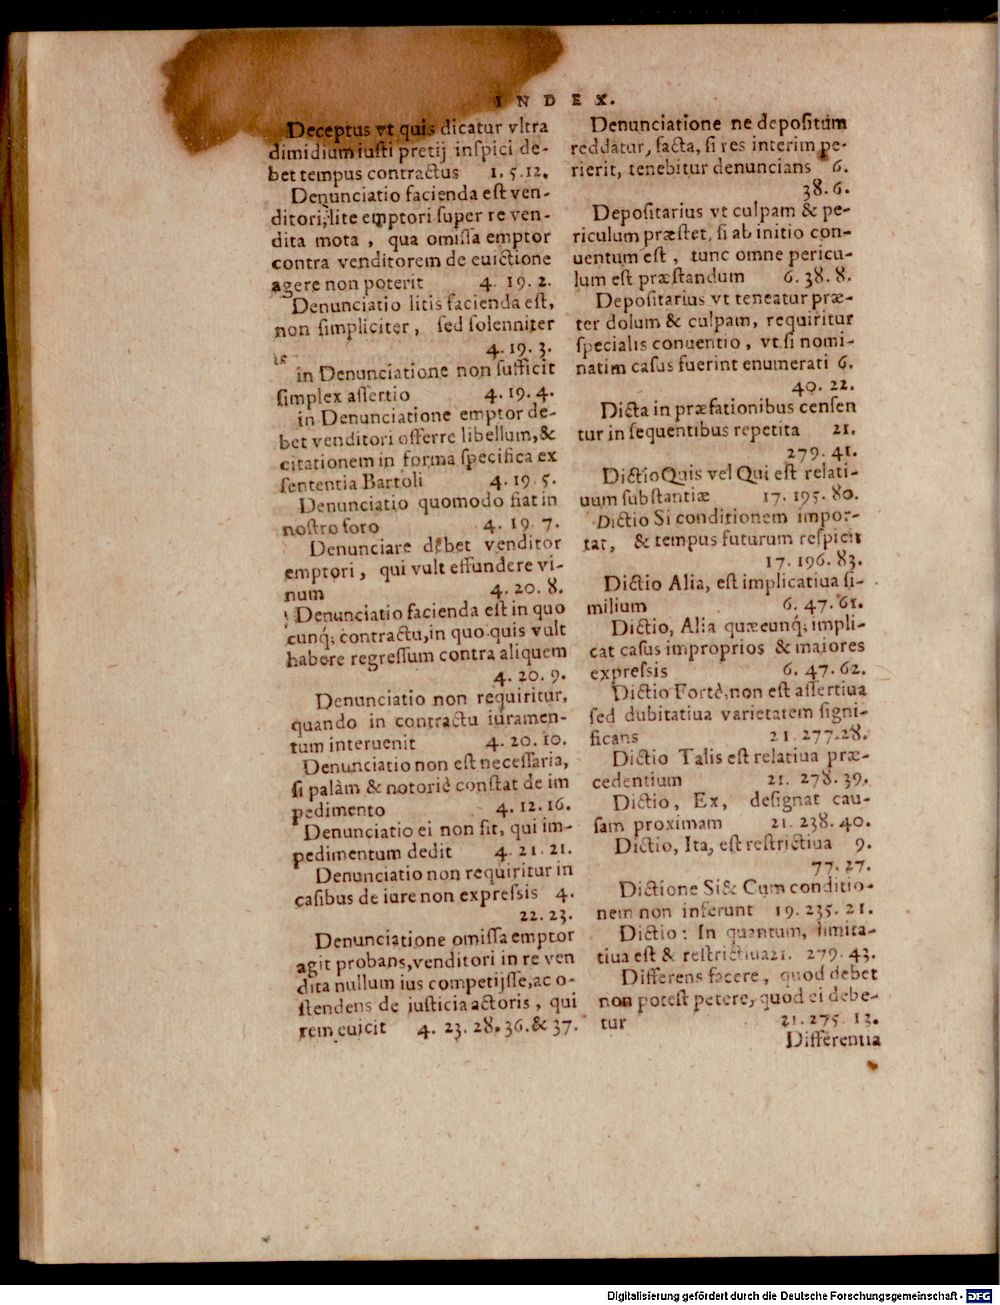 INDEX.
Deceptus vt quis dicatur vltra
dimidium iusti pretij inspici de-
bet tempus contractus 1. 5. 12.
Denunciatio facienda est ven-
ditori, lite emptori super re ven-
dita mota, qua omissa emptor
contra venditorem de euictione
agere non poterit 4. 19. 2.
Denunciatio litis facienda est,
non simpliciter, sed solenniter
4. 19. 3.
in Denunciatione non sufficit
simplex assertio 4. 19. 4.
in Denunciatione emptor de-
bet venditori offerre libellum, &
citationem in forma specifica ex
sententia Bartoli 4. 19. 5.
Denunciatio quomodo fiat in
nostro foro 4. 19. 7.
Denunciare debet venditor
emptori, qui vult effundere vi-
num 4. 20. 8.
Denunciatio facienda est in quo
cunq; contractu, in quo quis vult
habere regressum contra aliquem
4. 20. 9.
Denunciatio non requiritur,
quando in contractu iuramen-
tum interuenit 4. 20. 10.
Denunciatio non est necessaria,
si palàm & notoriè constat de im
pedimento 4. 12. 16.
Denunciatio ei non fit, qui im-
pedimentum dedit 4. 21. 21.
Denunciatio non requiritur in
casibus de iure non expressis 4.
22. 23.
Denunciatione omissa emptor
agit probans, venditori in re ven
dita nullum ius competijsse, ac o-
stendens de iusticia actoris, qui
rem euicit 4. 23. 28. 36. & 37.
Denunciatione ne depositum
reddatur, facta, si res interim pe-
rierit, tenebitur denuncians 6.
38. 6.
Depositarius vt culpam & pe-
riculum præstet, si ab initio con-
uentum est, tunc omne pericu-
lum est præstandum 6. 38. 8.
Depositarius vt teneatur præ-
ter dolum & culpam, requiritur
specialis conuentio, vt si nomi-
natim casus fuerint enumerati 6.
40. 22.
Dicta in præfationibus censen
tur in sequentibus repetita 21.
279. 41.
Dictio Quis vel Qui est relati-
uum substantiæ 17. 195. 80.
Dictio Si conditionem impor-
tat, & tempus futurum respicit
17. 196. 83.
Dictio Alia, est implicatiua si-
milium 6. 47. 61.
Dictio, Alia quæcunq; impli-
cat casus improprios & maiores
expressis 6. 47. 62.
Dictio Fortè, non est assertiua
sed dubitatiua varietatem signi-
ficans 21. 277. 28.
Dictio Talis est relatiua præ-
cedentium 21. 278. 39.
Dictio, Ex, designat cau-
sam proximam 21. 238. 40.
Dictio, Ita, est restrictiua 9.
77. 27.
Dictione Si & Cum conditio-
nem non inferunt 19. 235. 21.
Dictio: In quantum, limita-
tiua est & restrictiua 21. 279. 43.
Differens facere, quod debet
non potest petere, quod ei debe-
tur 21. 275. 12.
Differentia
Digitalisierung gefördert durch die Deutsche Forschungsgemeinschaft - DFG